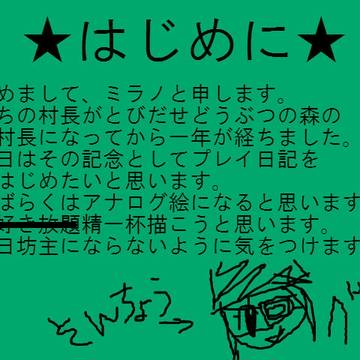 ★はじめに★
めまして、ミラノと申します。
ちの村長がとびだせどうぶつの森の
村長になってから一年が経ちました。
日はその記念としてプレイ日記を
はじめたいと思います。
ばらくはアナログ絵になると思います
好き放題精一杯描こうと思います。
日坊主にならないように気をつけます
そんちょう→